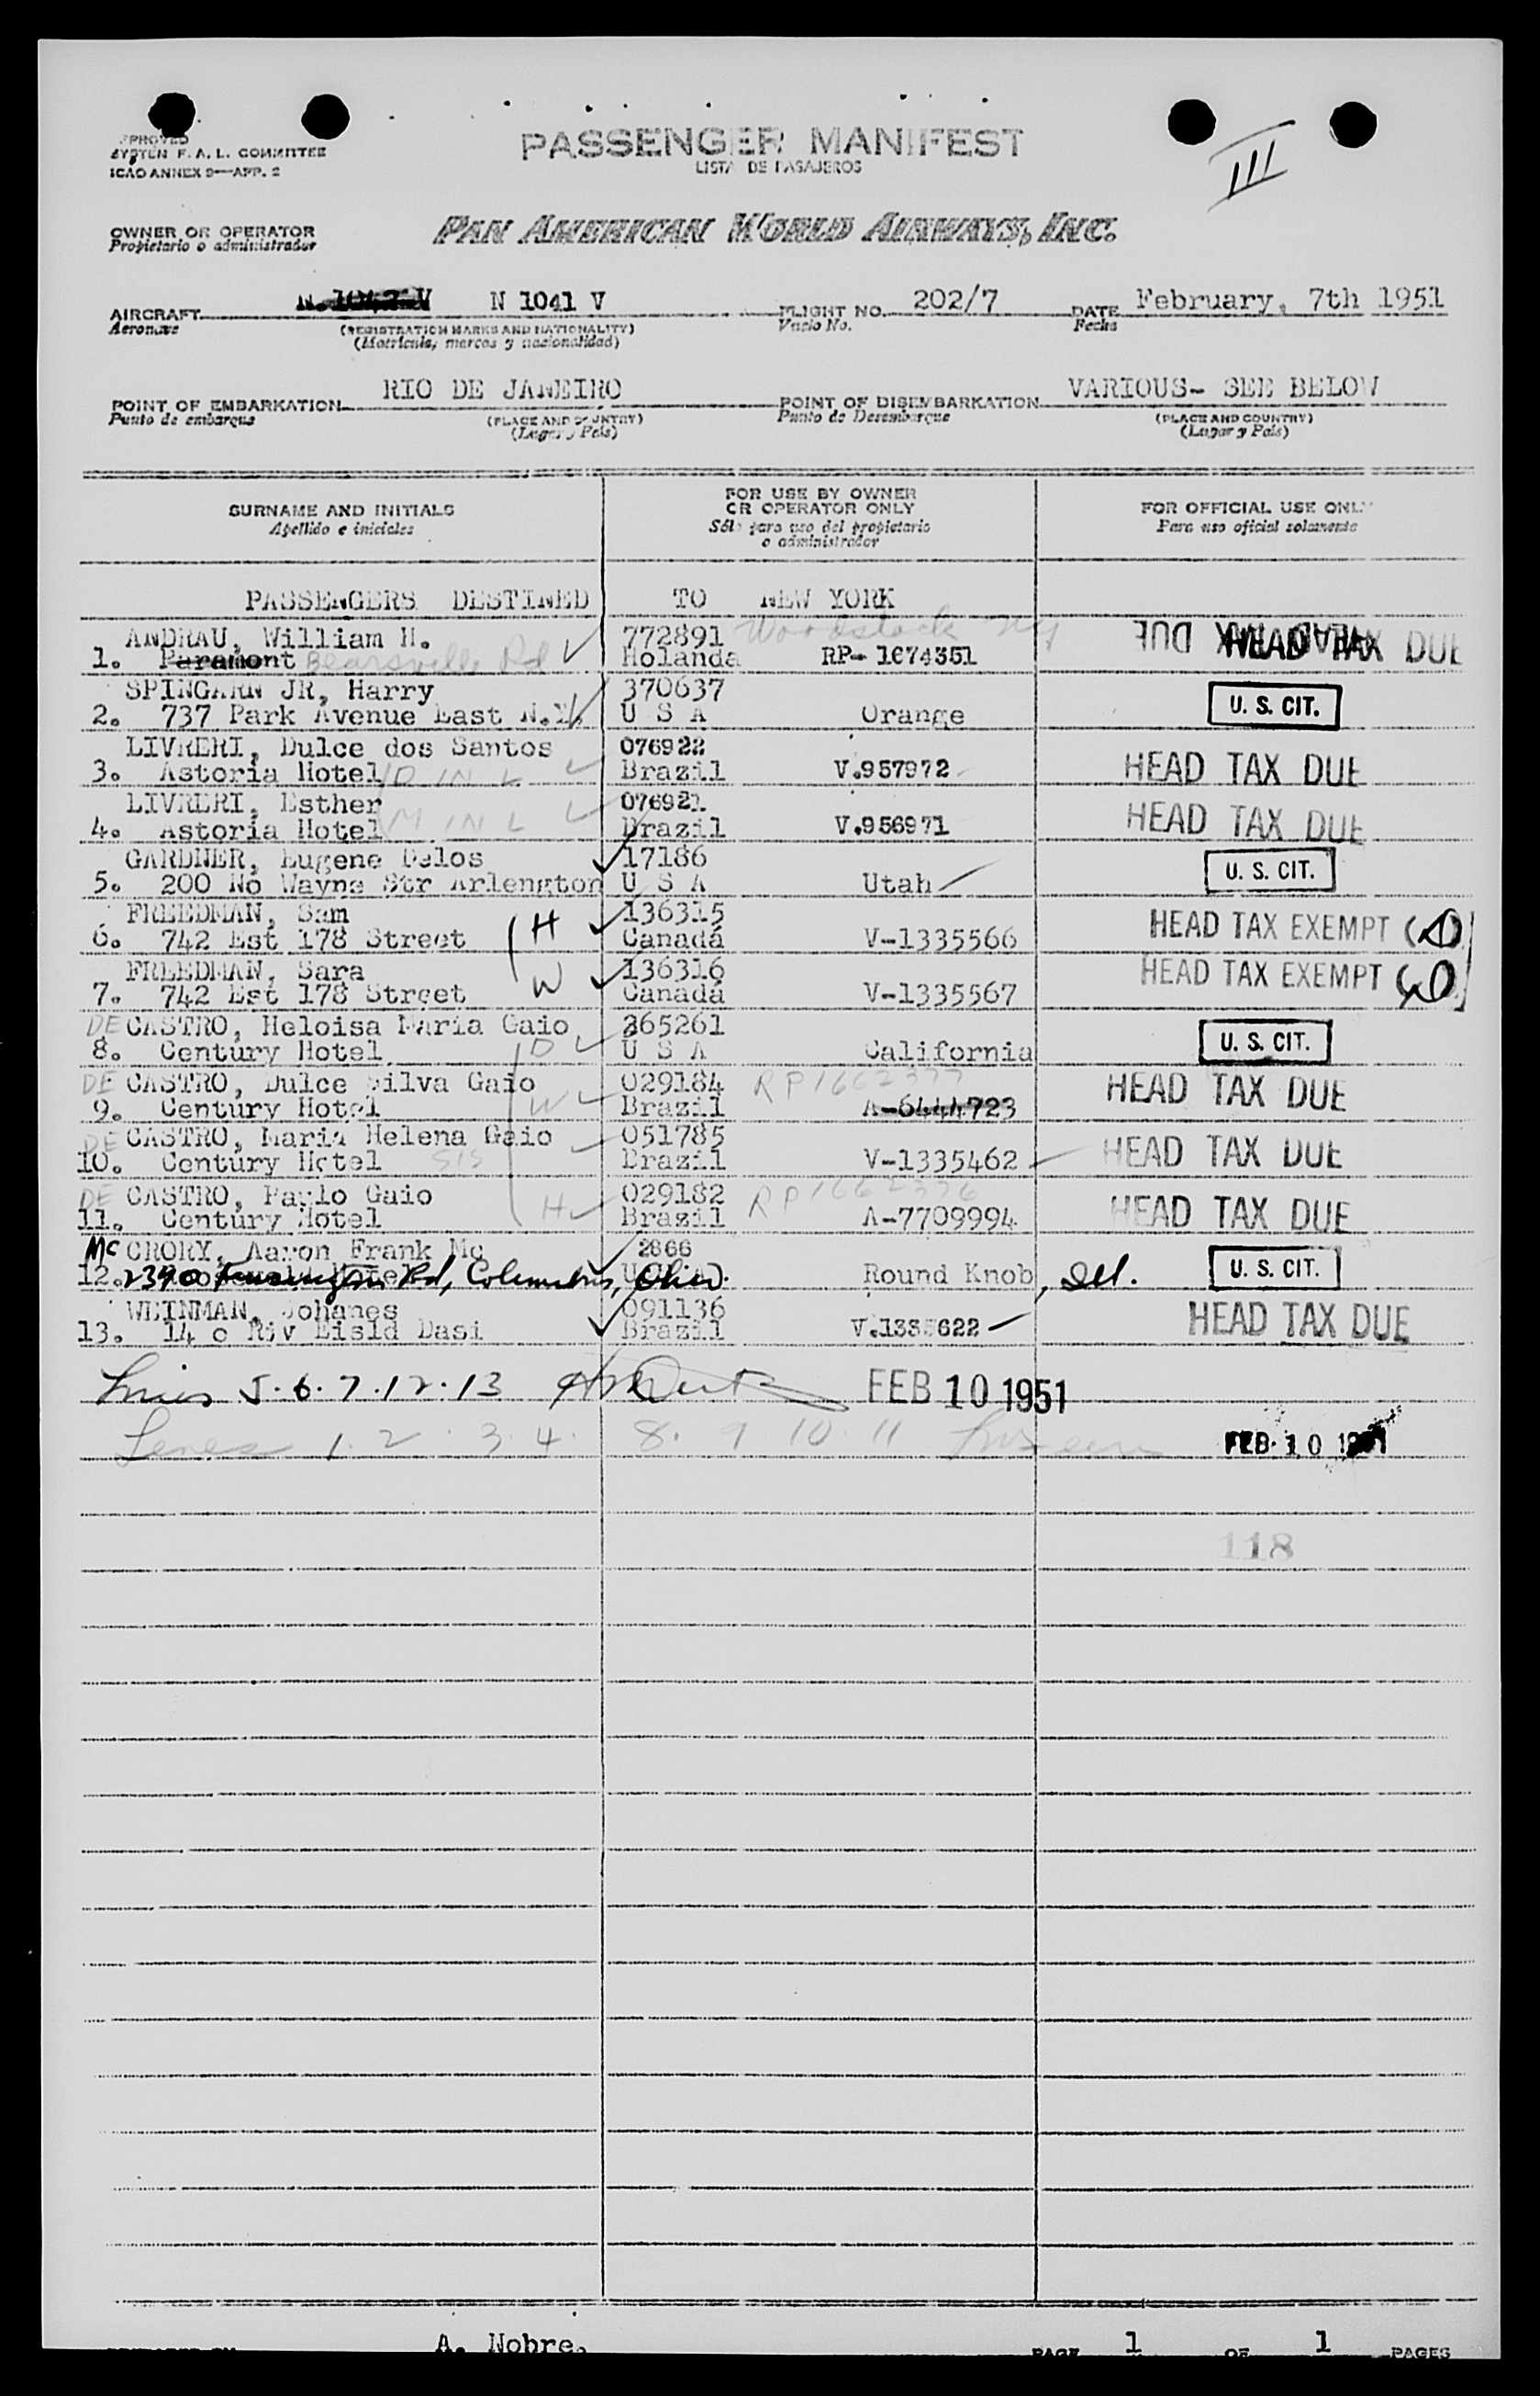 APPROVED
SYSTEM F. A. L. COMMITTEE
ICAO ANNEX 9—APP. 2
PASSENGER MANIFEST
LISTA DE PASAJEROS
III
OWNER OR OPERATOR
Propietario o administrador
PAN AMERICAN WORLD AIRWAYS, INC.
AIRCRAFT N 1041 V FLIGHT NO. 202/7 DATE February, 7th 1951
Aeronave (REGISTRATION MARKS AND NATIONALITY) Vuelo No. Fecha
(Matricula, marcas y nacionalidad)
POINT OF EMBARKATION RIO DE JANEIRO POINT OF DISEMBARKATION VARIOUS- SEE BELOW
Punto de embarque (PLACE AND COUNTRY) Punto de Desembarque (PLACE AND COUNTRY)
(Lugar y País) (Lugar y País)
SURNAME AND INITIALS FOR USE BY OWNER OR OPERATOR ONLY FOR OFFICIAL USE ONLY
Apellido e iniciales Sólo para uso del propietario o administrador Para uso oficial solamente
PASSENGERS DESTINED TO NEW YORK
ANDRAU, William H. 772891 Woodstock NY HEAD TAX DUE
1. Paramont Bearsville Rd Holanda RP- 1674351 HEAD TAX DUE
SPINGARN JR, Harry 370637
2. 737 Park Avenue East N.Y. U S A Orange U. S. CIT.
LIVRERI, Dulce dos Santos 076922
3. Astoria Hotel D IN L Brazil V.957972 HEAD TAX DUE
LIVRERI, Esther 076921
4. Astoria Hotel M IN L Brazil V.956971 HEAD TAX DUE
GARDNER, Eugene Delos 17186
5. 200 No Wayne Str Arlengton U S A Utah U. S. CIT.
FREEDMAN, Sam 136315
6. 742 Est 178 Street H Canadá V-1335566 HEAD TAX EXEMPT
FREEDMAN, Sara 136316
7. 742 Est 178 Street W Canadá V-1335567 HEAD TAX EXEMPT
DE CASTRO, Heloisa Maria Gaio 265261
8. Century Hotel D U S A California U. S. CIT.
DE CASTRO, Dulce Silva Gaio 029184 RP1662377
9. Century Hotel W Brazil A-6444723 HEAD TAX DUE
DE CASTRO, Maria Helena Gaio 051785
10. Century Hotel SIS Brazil V-1335462 HEAD TAX DUE
DE CASTRO, Paulo Gaio 029182 RP1662376
11. Century Hotel H Brazil A-7709994 HEAD TAX DUE
Mc CRORY, Aaron Frank Mc 2866
12. 2390 Rd, Columbus, Ohio. Round Knob, Ill. U. S. CIT.
WEINMAN, Johanes 091136
13. 14 o Riv Eisld Dasi Brazil HEAD TAX DUE
Lines 5. 6. 7. 12. 13 FEB 10 1951
Lines 1. 2. 3. 4. 8. 9 10 11 FEB 10 1951
118
A. Nobre. PAGE 1 OF 1 PAGES